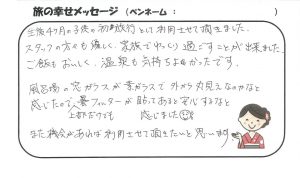 旅の幸せメッセージ (ペンネーム： )
生後4ヶ月の子供の初旅行として利用させて頂きました。
スタッフの方々も優しく、家族でゆっくり過ごすことが出来ました。
ご飯もおいしく、温泉も気持ちよかったです。
風呂場の窓ガラスが素ガラスで外から丸見えなのかなと
感じたので、フィルターが貼ってあると安心するなと
上部だけでも 感じました
また機会があれば利用させて頂きたいと思います